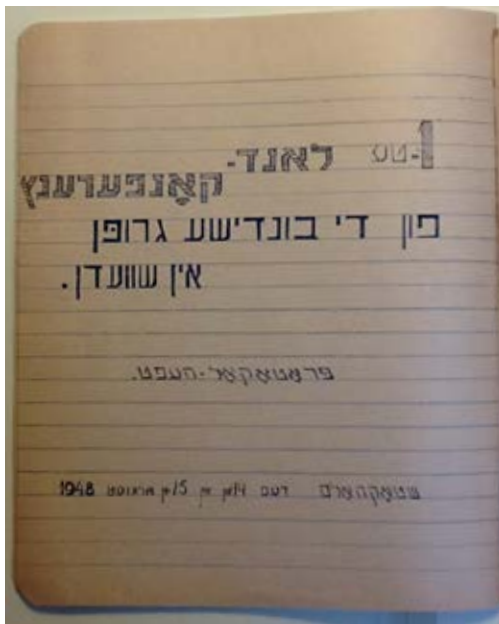 1-טע לאנד-
קאָנפערענץ
פון די בונדישע גרופן
אין שוועדן.
פראטאקאל-העפט.
שטאקהאלם דעם 14טן און 15טן אויגוסט 1948